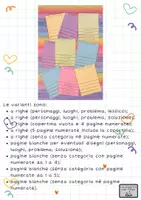 Le varianti sono:
a righe (personaggi, luoghi, problema, lessico);
a righe (personaggi, luoghi, problema, soluzione);
a righe (copertina vuota e 4 pagine numerate);
a righe (5 pagine numerate inclusa la copertina);
a righe (senza categoria né pagine numerate);
pagine bianche per eventuali disegni (personaggi,
luoghi, problema, soluzione);
pagine bianche (senza categoria con pagine
numerate da 1 a 4);
pagine bianche (senza categoria con pagine
numerate da 1 a 5);
pagine bianche (senza categoria né pagine
numerate).